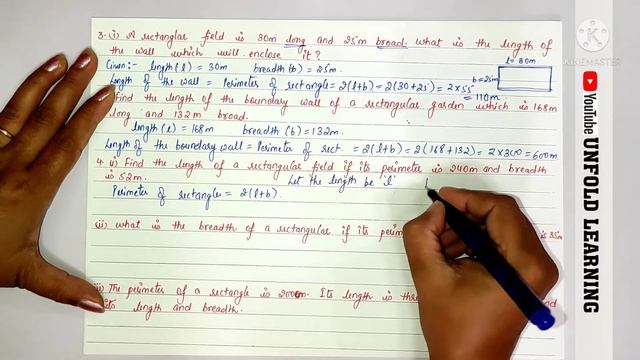 3. i) A rectangular field is 30m long and 25m broad. what is the length of
the wall which will enclose it?
l = 30m
Given:- length (l) = 30m breadth (b) = 25m.
b = 25m
Length of the wall = Perimeter of rectangle = 2(l+b) = 2(30+25) = 2×55
= 110m
Find the length of the boundary wall of a rectangular garden which is 168m
long and 132m broad.
length (l) = 168m breadth (b) = 132m.
Length of the boundary wall = Perimeter of rect. = 2(l+b) = 2(168+132) = 2×300 = 600m
4. i) Find the length of a rectangular field if its perimeter is 240m and breadth
is 52m. Let the length be 'l'
Perimeter of rectangle = 2(l+b).
(ii) what is the breadth of a rectangular if its is 35m
iii) The perimeter of a rectangle is 200m. Its length is
its length and breadth.
KINEMASTER
YouTube UNFOLD LEARNING